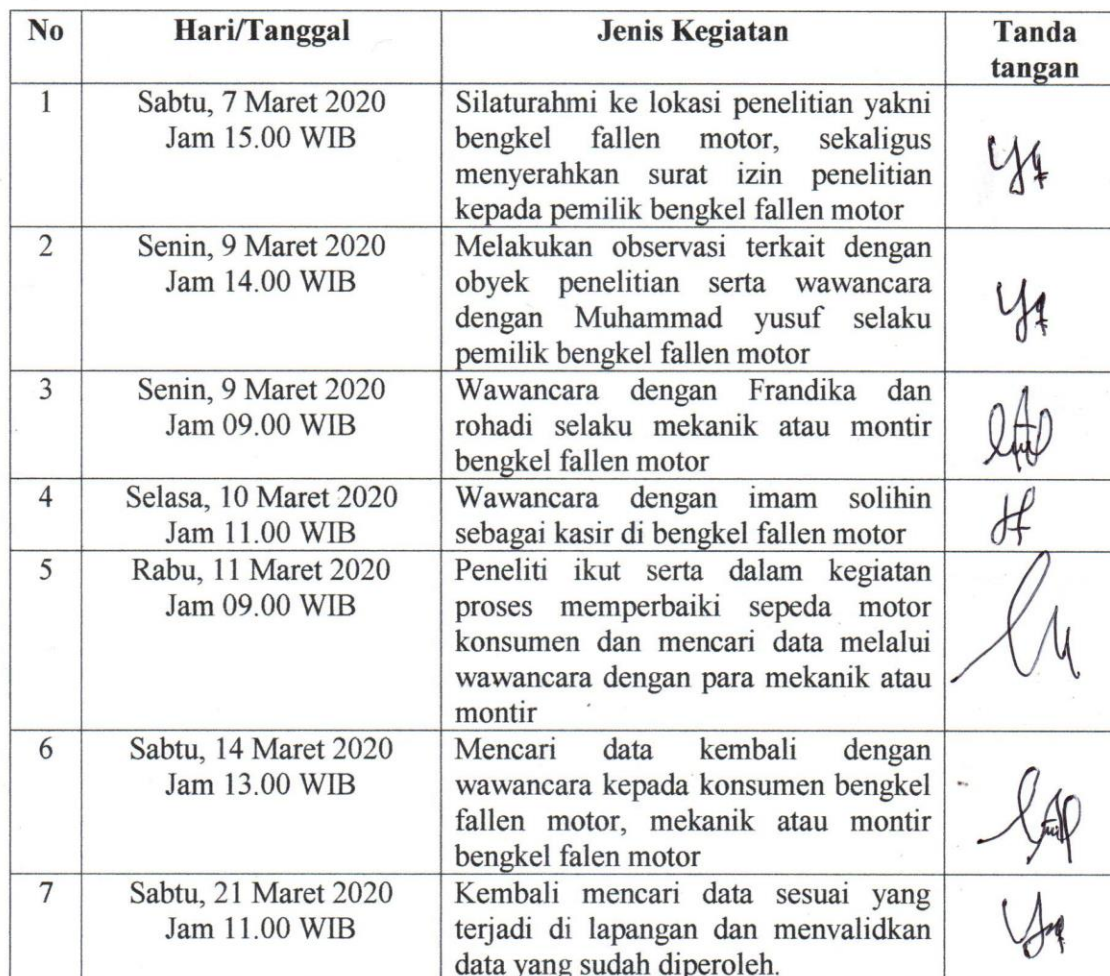 No Hari/Tanggal Jenis Kegiatan Tanda
tangan
1 Sabtu, 7 Maret 2020 Silaturahmi ke lokasi penelitian yakni
Jam 15.00 WIB bengkel fallen motor, sekaligus
menyerahkan surat izin penelitian
kepada pemilik bengkel fallen motor
2 Senin, 9 Maret 2020 Melakukan observasi terkait dengan
Jam 14.00 WIB obyek penelitian serta wawancara
dengan Muhammad yusuf selaku
pemilik bengkel fallen motor
3 Senin, 9 Maret 2020 Wawancara dengan Frandika dan
Jam 09.00 WIB rohadi selaku mekanik atau montir
bengkel fallen motor
4 Selasa, 10 Maret 2020 Wawancara dengan imam solihin
Jam 11.00 WIB sebagai kasir di bengkel fallen motor
5 Rabu, 11 Maret 2020 Peneliti ikut serta dalam kegiatan
Jam 09.00 WIB proses memperbaiki sepeda motor
konsumen dan mencari data melalui
wawancara dengan para mekanik atau
montir
6 Sabtu, 14 Maret 2020 Mencari data kembali dengan
Jam 13.00 WIB wawancara kepada konsumen bengkel
fallen motor, mekanik atau montir
bengkel falen motor
7 Sabtu, 21 Maret 2020 Kembali mencari data sesuai yang
Jam 11.00 WIB terjadi di lapangan dan menvalidkan
data yang sudah diperoleh.